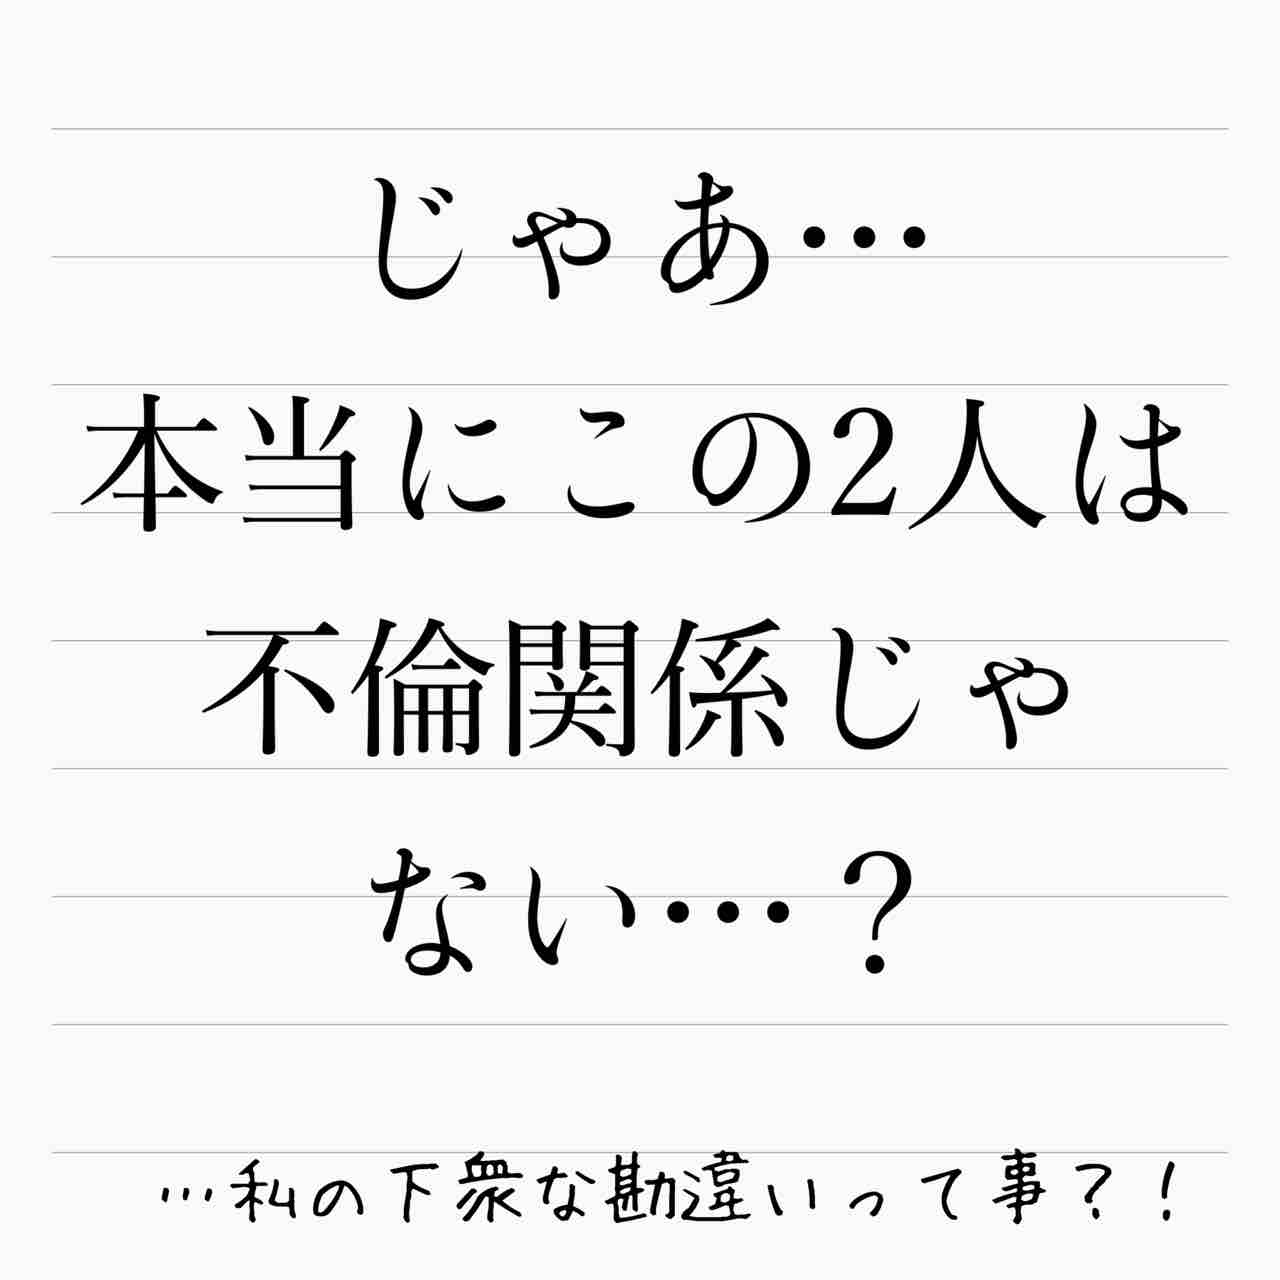 じゃあ…
本当にこの2人は
不倫関係じゃ
ない…？
…私の下衆な勘違いって事？！